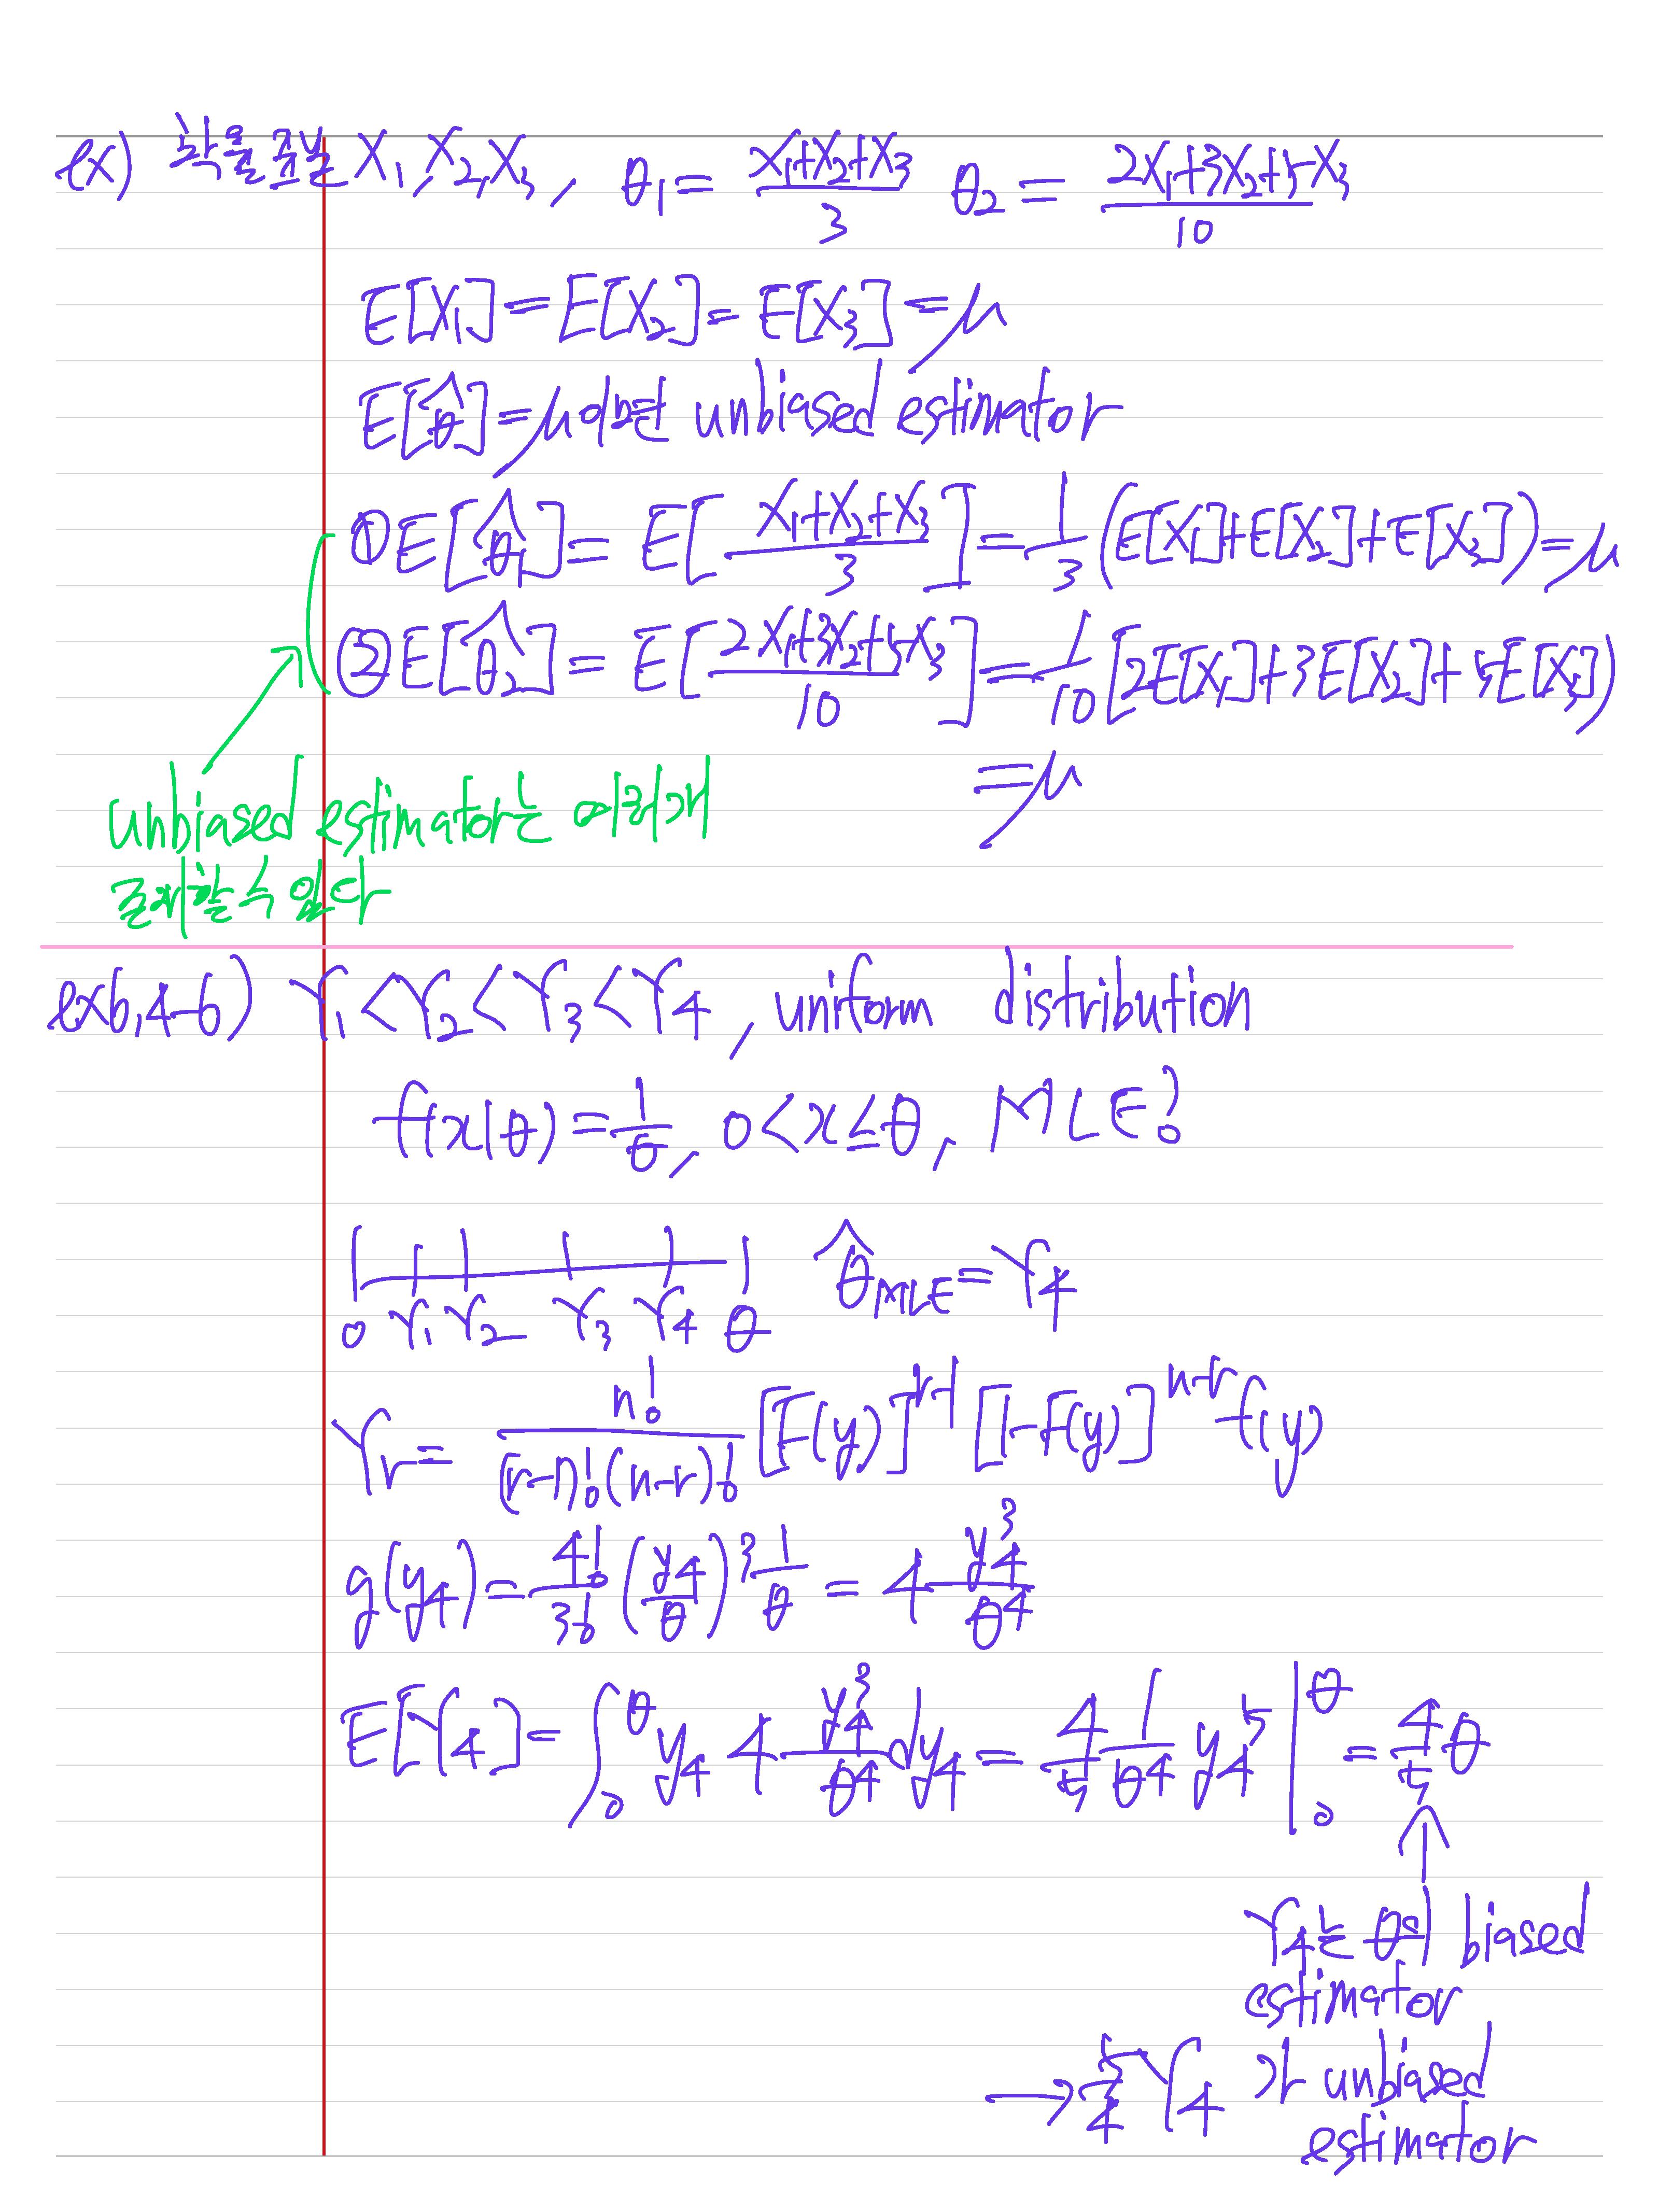 ex) 확률표본 X₁, X₂, X₃, θ₁ = (X₁+X₂+X₃)/3 θ₂ = (2X₁+3X₂+5X₃)/10
E[X₁] = E[X₂] = E[X₃] = μ
E[θ̂] = μ이면 unbiased estimator
① E[θ̂₁] = E[(X₁+X₂+X₃)/3] = 1/3 (E[X₁]+E[X₂]+E[X₃]) = μ
② E[θ̂₂] = E[(2X₁+3X₂+5X₃)/10] = 1/10 [2E[X₁]+3E[X₂]+5E[X₃])
= μ
unbiased estimator는 여러개
존재할 수 있다
ex6.4-6) Y₁ < Y₂ < Y₃ < Y₄, uniform distribution
f(x|θ) = 1/θ, 0 < x ≤ θ, MLE?
0 Y₁ Y₂ Y₃ Y₄ θ θ̂_MLE = Y₄
Yr = n!/((r-1)!(n-r)!) [F(y)]^(r-1) [1-F(y)]^(n-r) f(y)
g(y₄) = 4!/3! (y₄/θ)³ 1/θ = 4 y₄³/θ⁴
E[Y₄] = ∫₀^θ y₄ 4 y₄³/θ⁴ dy₄ = 4/5 1/θ⁴ y₄⁵ |₀^θ = 4/5 θ
Y₄는 θ의 biased
estimator
→ 5/4 Y₄ 가 unbiased
estimator